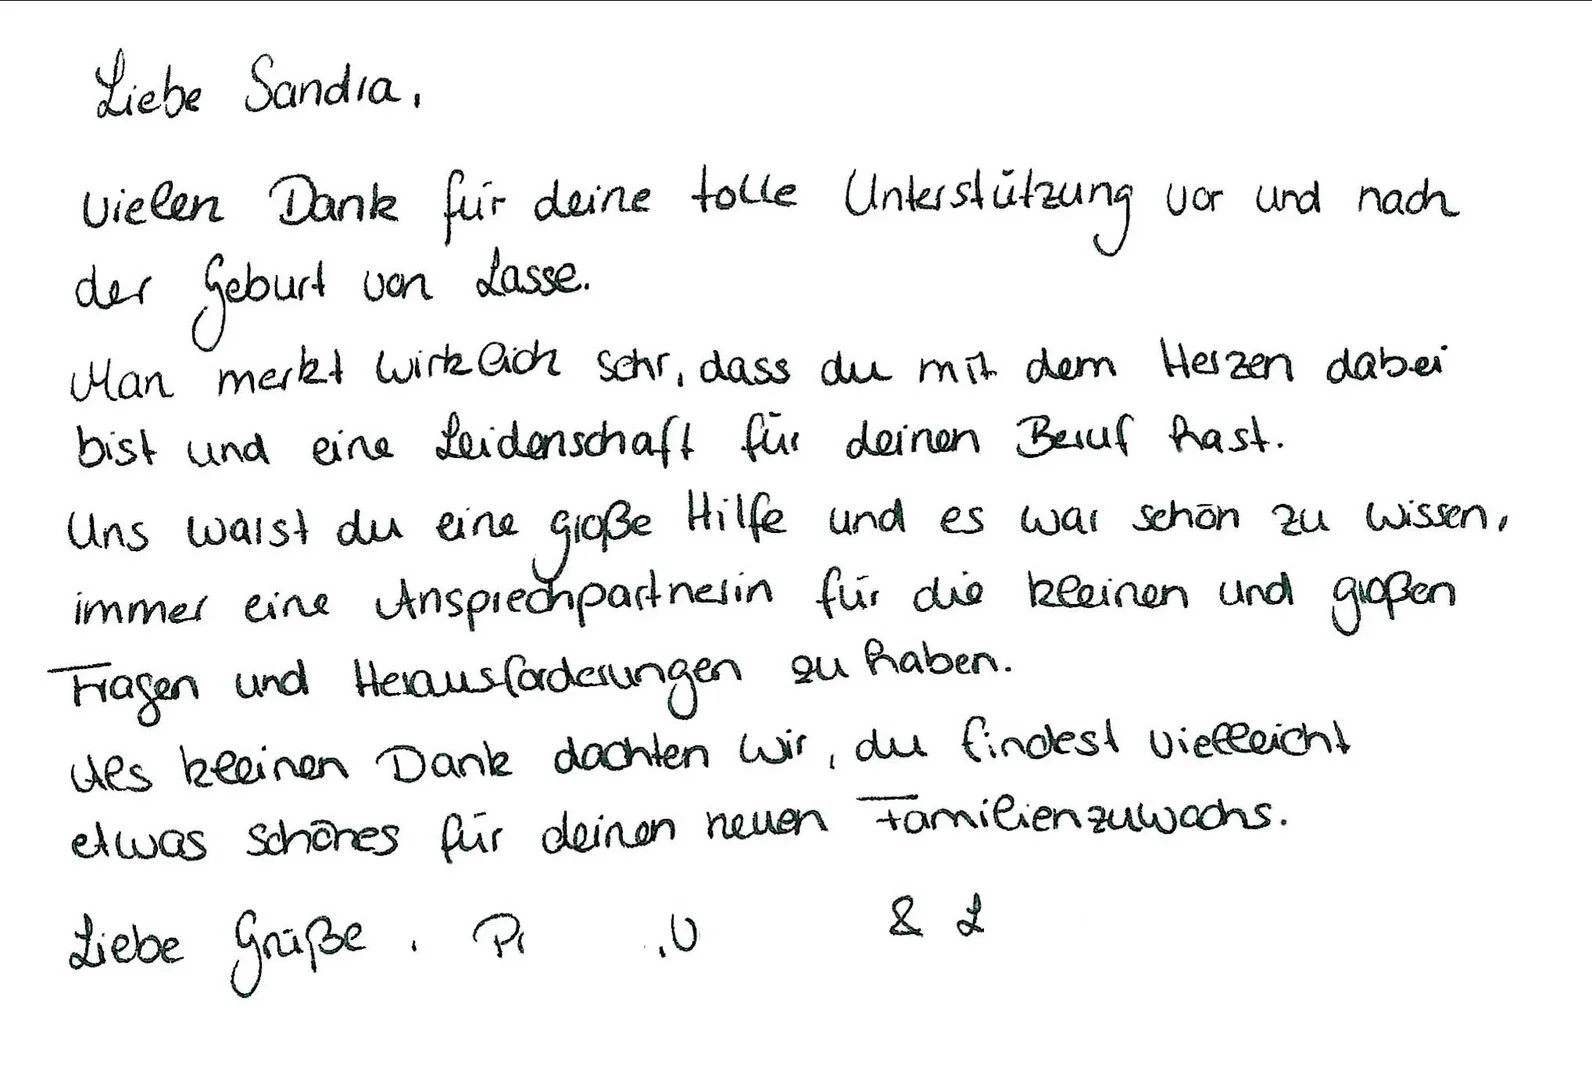 Liebe Sandra,
vielen Dank für deine tolle Unterstützung vor und nach
der Geburt von Lasse.
Man merkt wirklich sehr, dass du mit dem Herzen dabei
bist und eine Leidenschaft für deinen Beruf hast.
Uns warst du eine große Hilfe und es war schön zu wissen,
immer eine Ansprechpartnerin für die kleinen und großen
Fragen und Herausforderungen zu haben.
Als kleinen Dank dachten wir, du findest vielleicht
etwas schönes für deinen neuen Familienzuwachs.
Liebe Grüße, & L